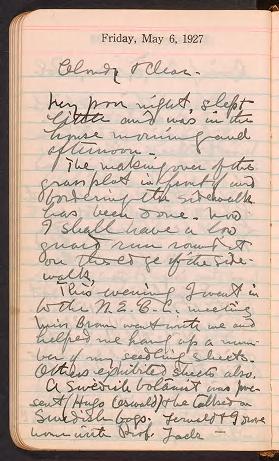 Friday, May 6, 1927
Cloudy & Clear.
Very poor night, slept
little and was in the
house morning and
afternoon.
The making over of the
grass plat in front and
bordering the sidewalk
has been done. Now
I shall have a low
guard run round it
on the edge of the side-
walk.
This evening I went in
to the N.E.B.C. meeting
Miss Brown went with me and
helped me hang up a num-
ber of my seedling sheets.
Others exhibited sheets also.
A Swedish botanist was pre-
sent, Hugo (Oswald) & he talked on
Swedish bogs. & I drove
home with Prof. Jack